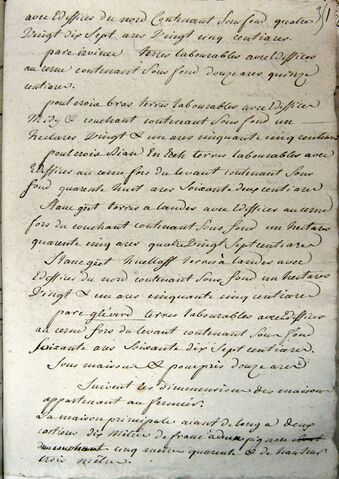 351
avec Ediffices du nord Contenant Sous fond quatre
Vingt dix Sept ares Vingt cinq centiares.
parc terres labourables avec Ediffices
au cerne contenant Sous fond douze ares quinze
centiares.
poul croix bras terres labourables avec Ediffices
Midy & couchant contenant Sous fond un
hectares Vingt & un ares cinquante cinq centiares
poul croix Bian En Eech terres labourables avec
Ediffices au cerne fors du levant contenant Sous
fond quarente huit ares Soixante deux centiares
Stanc terres a landes avec Ediffices au cerne
fors du couchant contenant Sous fond un hectares
quarente cinq ares quatre Vingt Sept centiares
Stanc terres a landes avec
Ediffices du nord contenant Sous fond un hectares
Vingt & un ares cinquante cinq centiares
parc terres labourables avec Ediffices
au cerne fors du levant contenant Sous fond
Soixante ares Soixante dix Sept centiares.
Sous maison & pourpris douze ares
Suivent les dimmensions des maisons
appartenant au fermier.
La maison principale aiant de long a deux
costieres dix mètres de franc a deux pignons
cinq mètres quarente & de hauteur
trois mètres.